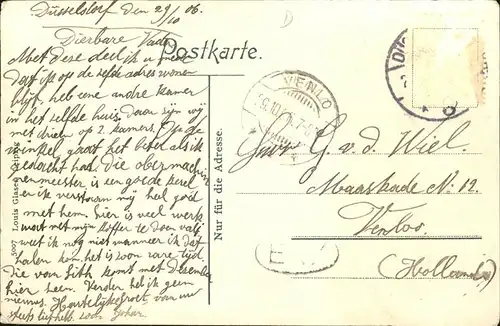 Düsseldorf den 29/10 06.
Dierbare Vader
Postkarte.
Met deze deel ik u mede
dat ik op de zelfde adres wonen
blijf, heb eene andre kamer
in het zelfde huis. Daar zijn wij
met drieën op 2 kamers. Op de
winkel gaat het beter als ik
gedacht had. Die obermachin
nenmeister is een goede kerel
en ik verstaan mij heel goed
met hem. hier is veel werk
met mijn koffer te doen valt
weet ik nog niet wanneer ik dat
halen kan. het is zoon rare tijd
die van Lith komt met Desember
hier heen. Verder heb ik geen
nieuws. Hartelijk groet van uw
liefheb. zoon Johan.
Nur für die Adresse.
5007 Louis Glaser, Leipzig
VENLO
G. v. d. Wiel.
Maaskade No 12.
Venloo.
(Holland)